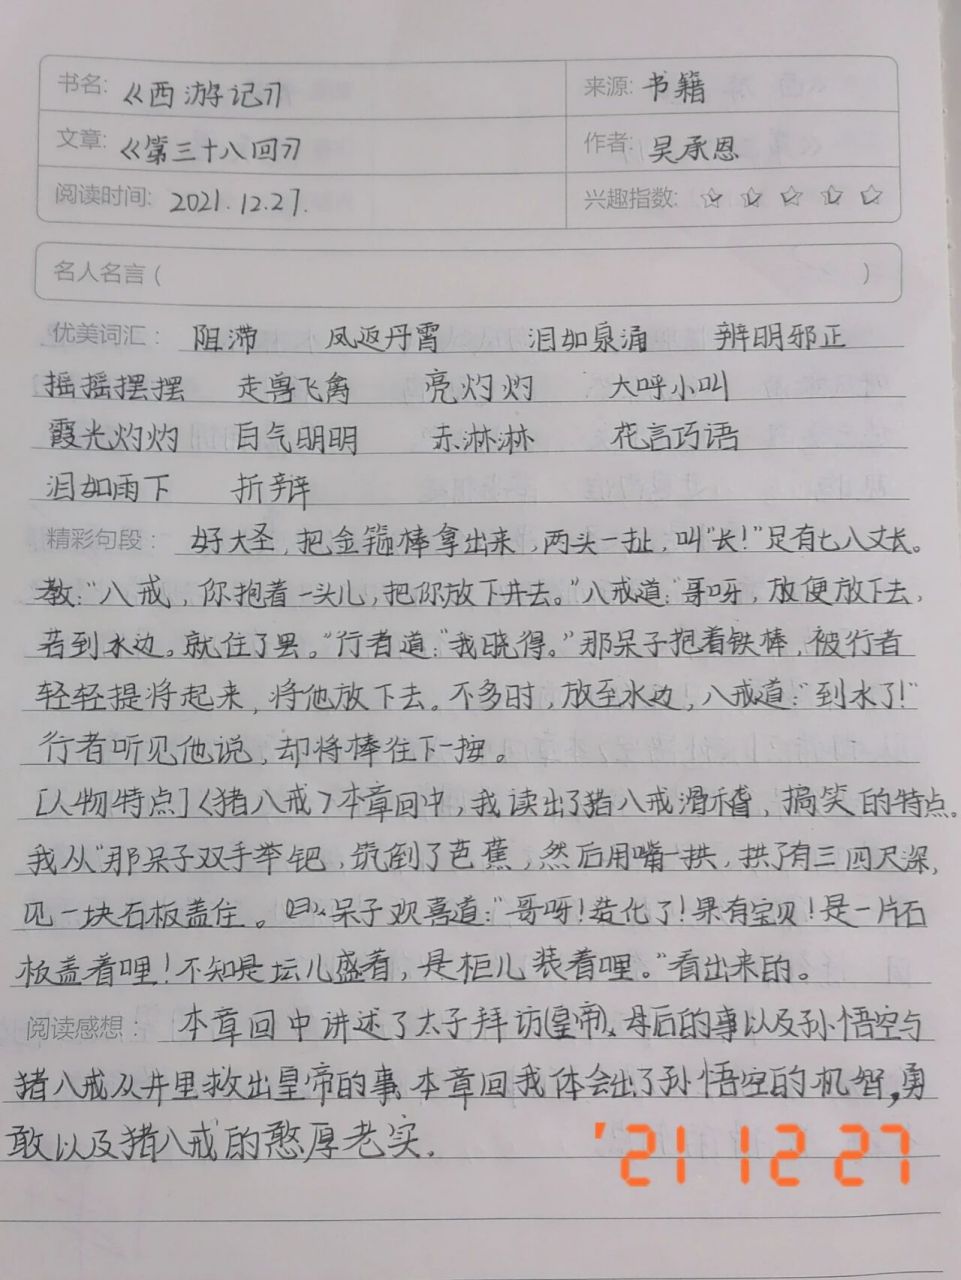 书名: 《西游记》 来源: 书籍
文章: 《第三十八回》 作者: 吴承恩
阅读时间: 2021.12.27. 兴趣指数: ☆ ☆ ☆ ☆ ☆
名人名言 ( )
优美词汇: 阻滞 凤返丹霄 泪如泉涌 辨明邪正
摇摇摆摆 走兽飞禽 亮灼灼 大呼小叫
霞光灼灼 白气明明 赤淋淋 花言巧语
泪如雨下 折辩
精彩句段: 好大圣,把金箍棒拿出来,两头一扯,叫“长!”足有七八丈长。
教:“八戒,你抱着一头儿,把你放下井去。”八戒道:“哥呀,放便放下去,
若到水边。就住了罢。”行者道:“我晓得。”那呆子抱着铁棒,被行者
轻轻提将起来,将他放下去。不多时,放至水边,八戒道:“到水了!”
行者听见他说,却将棒往下一按。
[人物特点]〈猪八戒〉本章回中,我读出了猪八戒滑稽,搞笑的特点。
我从“那呆子双手举钯,筑倒了芭蕉,然后用嘴一拱,拱了有三四尺深,
见一块石板盖住。呆子欢喜道:“哥呀!造化了!果有宝贝!是一片石
板盖着哩!不知是坛儿盛着,是柜儿装着哩。”看出来的。
阅读感想: 本章回中讲述了太子拜访(皇帝)、母后的事以及孙悟空与
猪八戒从井里救出皇帝的事,本章回我体会出了孙悟空的机智,勇
敢以及猪八戒的憨厚老实.
'21 12 27